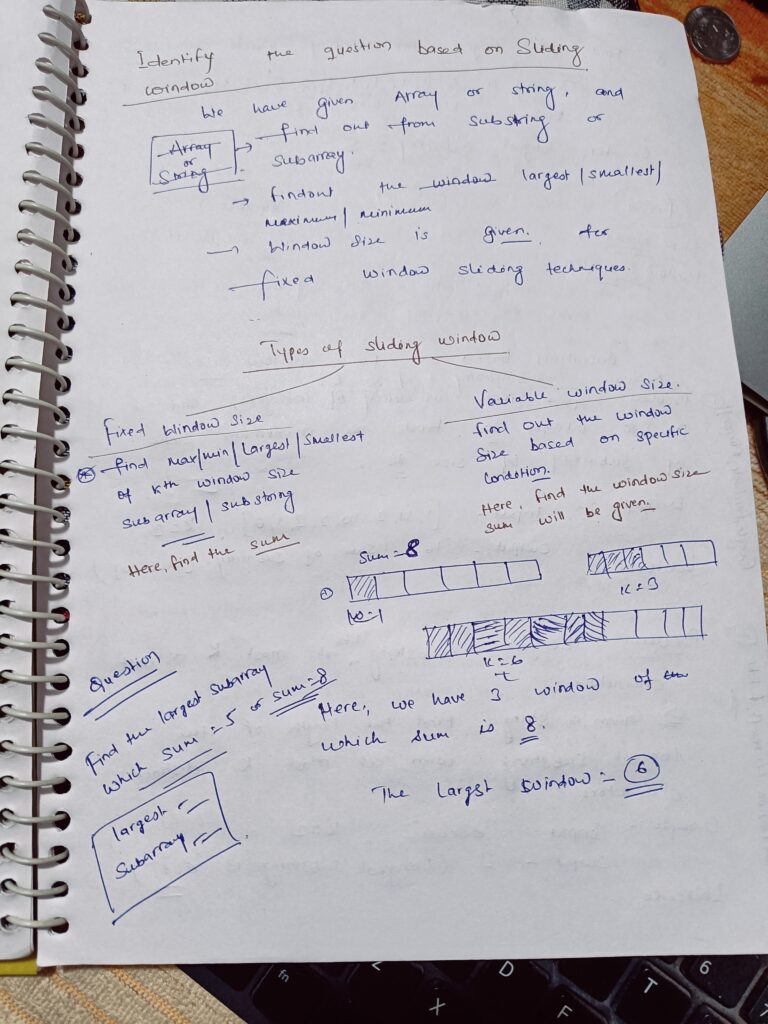 Identify the question based on Sliding
window
We have given Array or string, and
Array
or
String
→ find out from substring or
subarray.
→ findout the window largest/smallest/
maximum/minimum
→ Window Size is given. for
fixed window sliding techniques.
Types of sliding window
Fixed Window Size
find max/min/Largest/Smallest
of kth window size
subarray/substring
Here, find the sum
Variable window size.
find out the window
size based on specific
condition.
Here, find the window size
sum will be given.
Sum=8
k=1
k=3
k=6
Question
Find the largest subarray
which sum=5 or sum=8
largest
Subarray
Here, we have 3 window of
which sum is 8.
The Largst window = 6
fn
Z
X
D
F
T
6